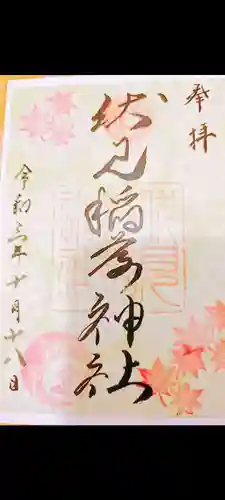 奉拝
伏見稲荷神社
令和三年十月十八日